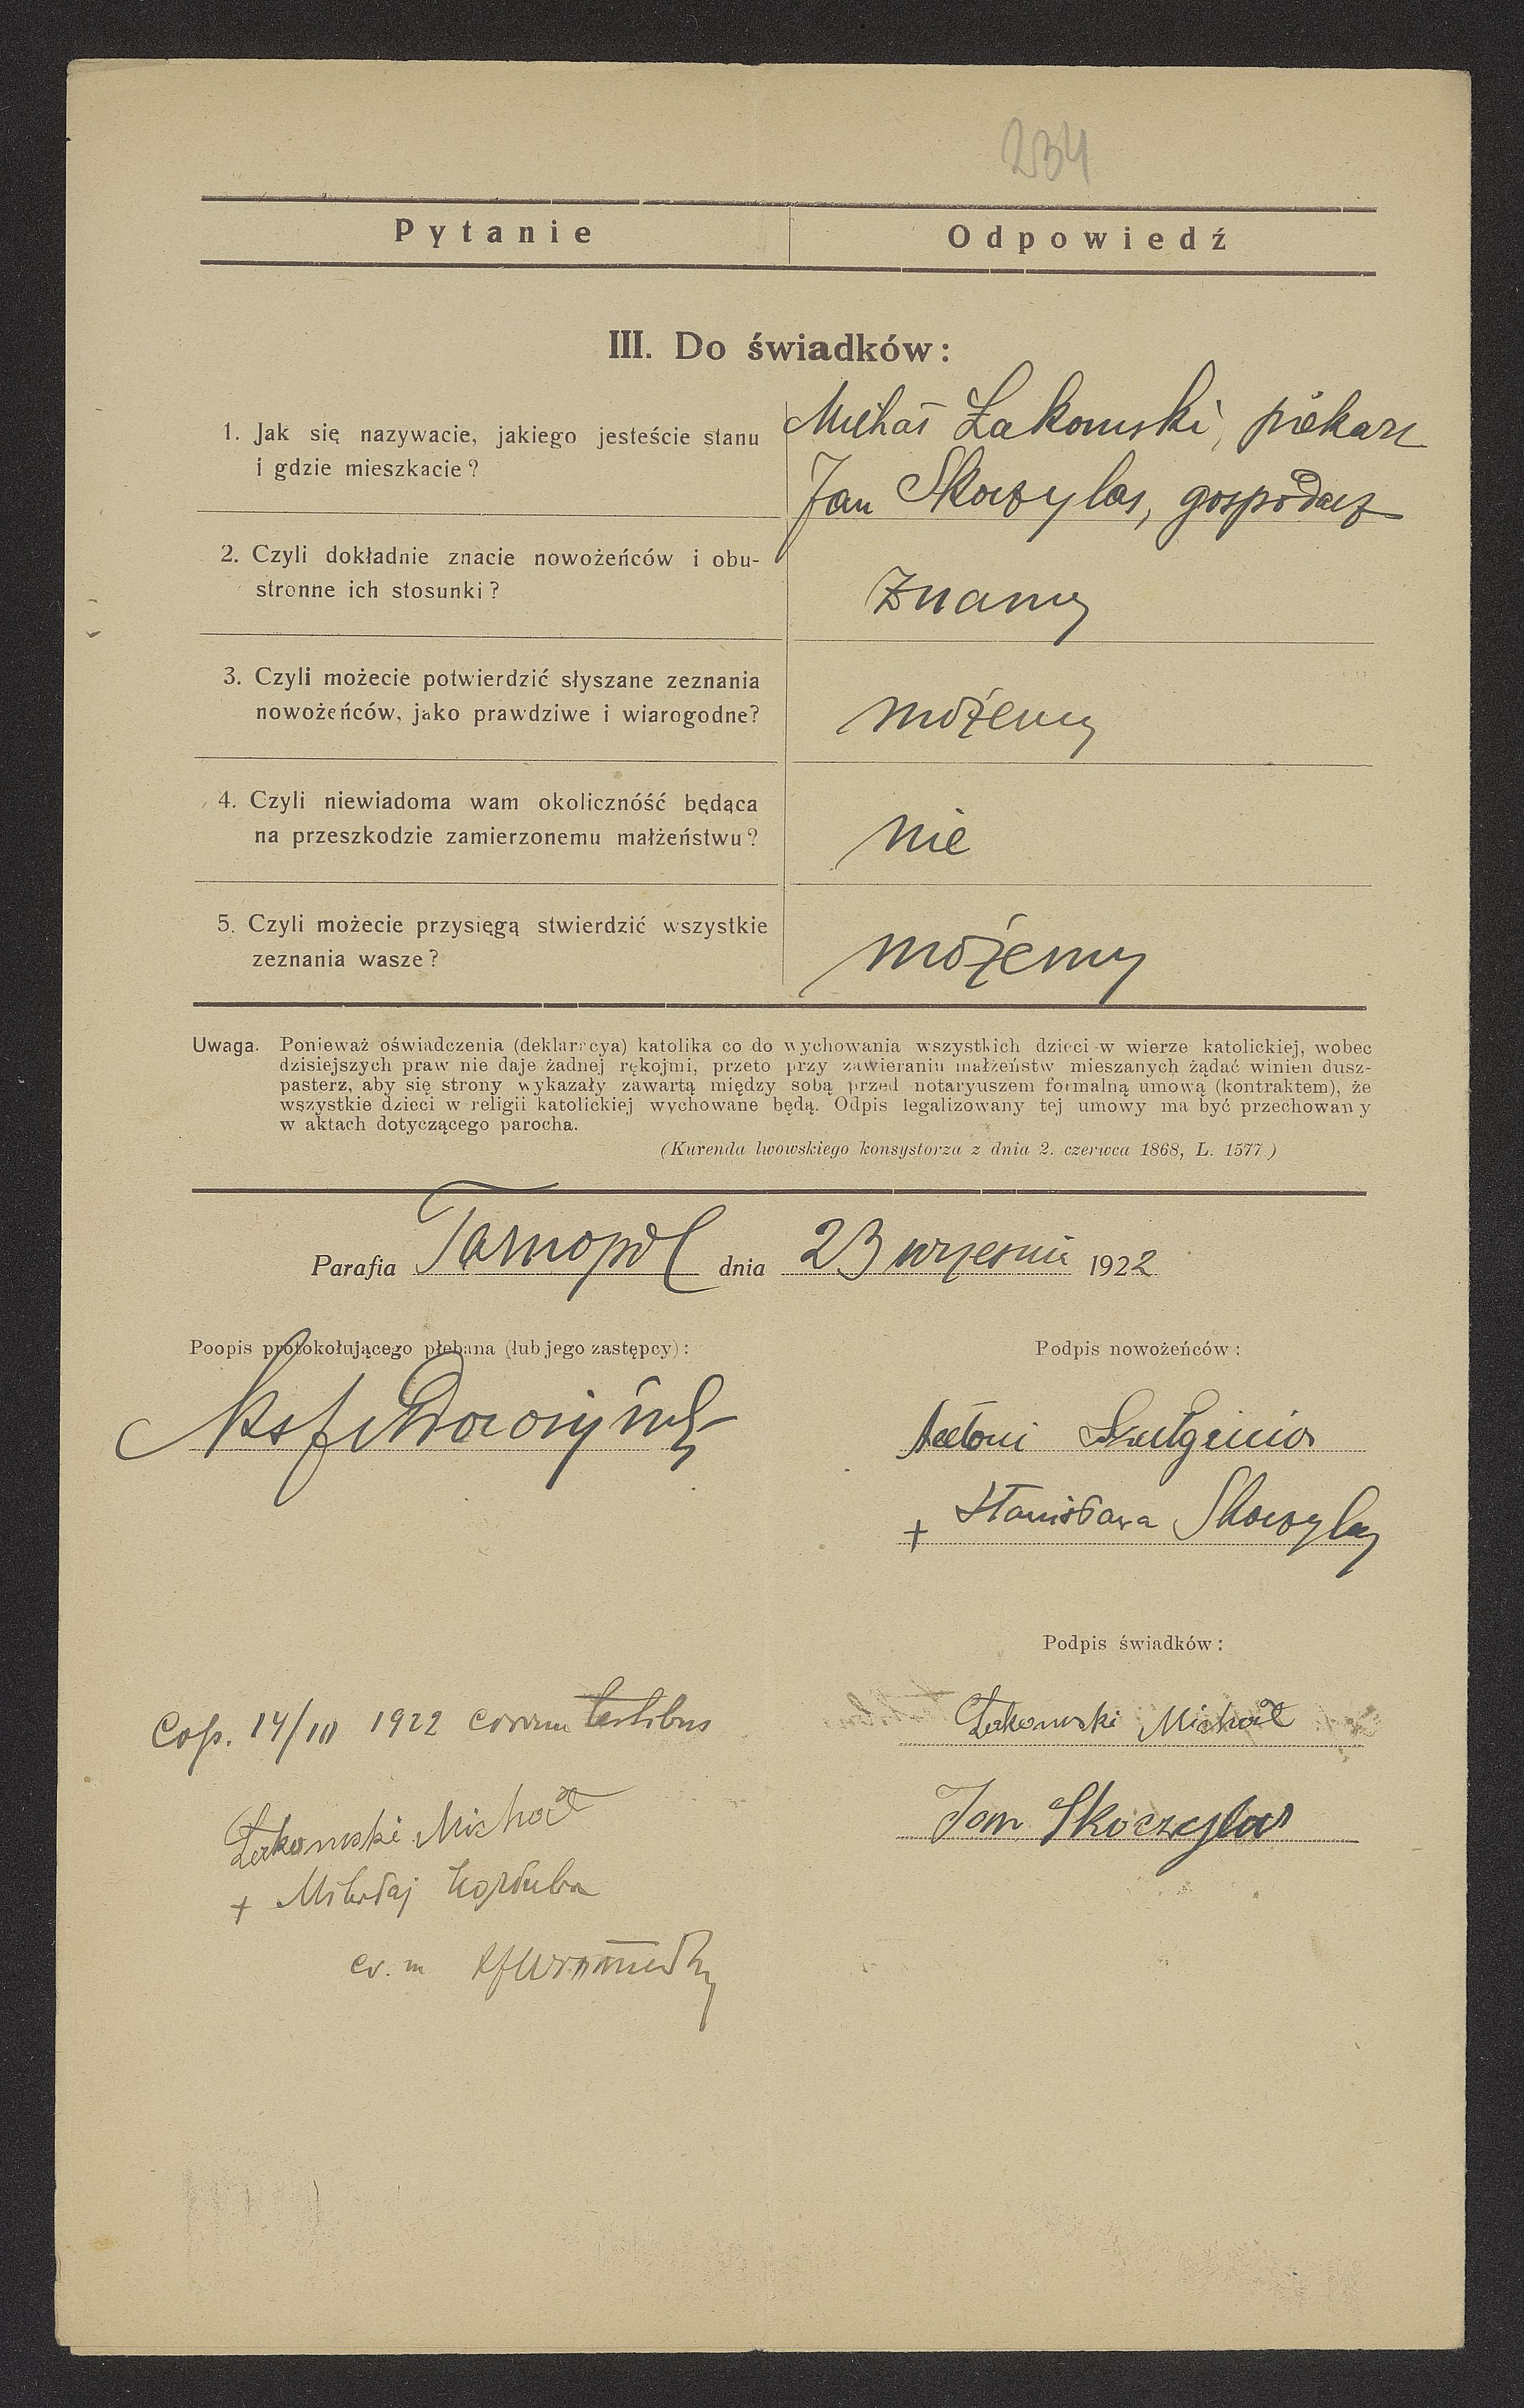 234
Pytanie Odpowiedź
III. Do świadków:
1. Jak się nazywacie, jakiego jesteście stanu
i gdzie mieszkacie?
Michał Łakomski, piekarz
Jan Skoczylas, gospodarz
2. Czyli dokładnie znacie nowożeńców i obu-
stronne ich stosunki?
Znamy
3. Czyli możecie potwierdzić słyszane zeznania
nowożeńców, jako prawdziwe i wiarogodne?
możemy
4. Czyli niewiadoma wam okoliczność będąca
na przeszkodzie zamierzonemu małżeństwu?
nie
5. Czyli możecie przysięgą stwierdzić wszystkie
zeznania wasze?
możemy
Uwaga. Ponieważ oświadczenia (deklaracya) katolika co do wychowania wszystkich dzieci w wierze katolickiej, wobec
dzisiejszych praw nie daje żadnej rękojmi, przeto przy zawieraniu małżeństw mieszanych żądać winien dusz-
pasterz, aby się strony wykazały zawartą między sobą przed notaryuszem formalną umową (kontraktem), że
wszystkie dzieci w religii katolickiej wychowane będą. Odpis legalizowany tej umowy ma być przechowany
w aktach dotyczącego parocha.
(Kurenda lwowskiego konsystorza z dnia 2. czerwca 1868, L. 1577)
Parafia Tarnopol dnia 23 września 1922
Poopis protokołującego plebana (lub jego zastępcy):
Podpis nowożeńców:
Antoni
+ Stanisława Skoczylas
Podpis świadków:
Łakomski Michał
Jan Skoczylas
Cop. 14/ 1922 coram testibus
Łakomski Michał
+ Mikołaj Kozłuba